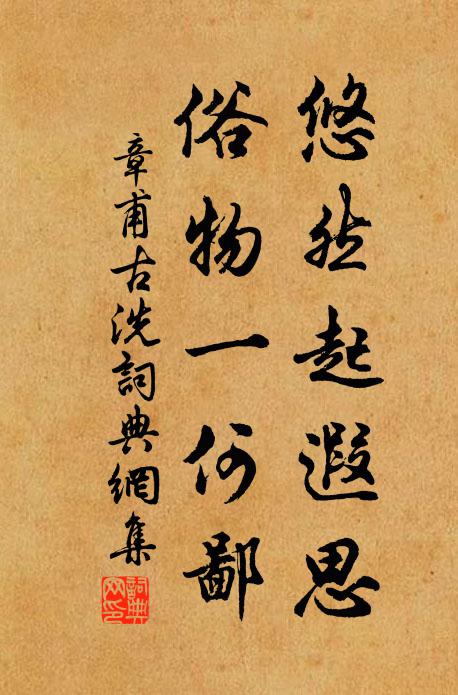 悠然起遐思
俗物一何鄙
章甫古洗詞典網集
詞典
网印